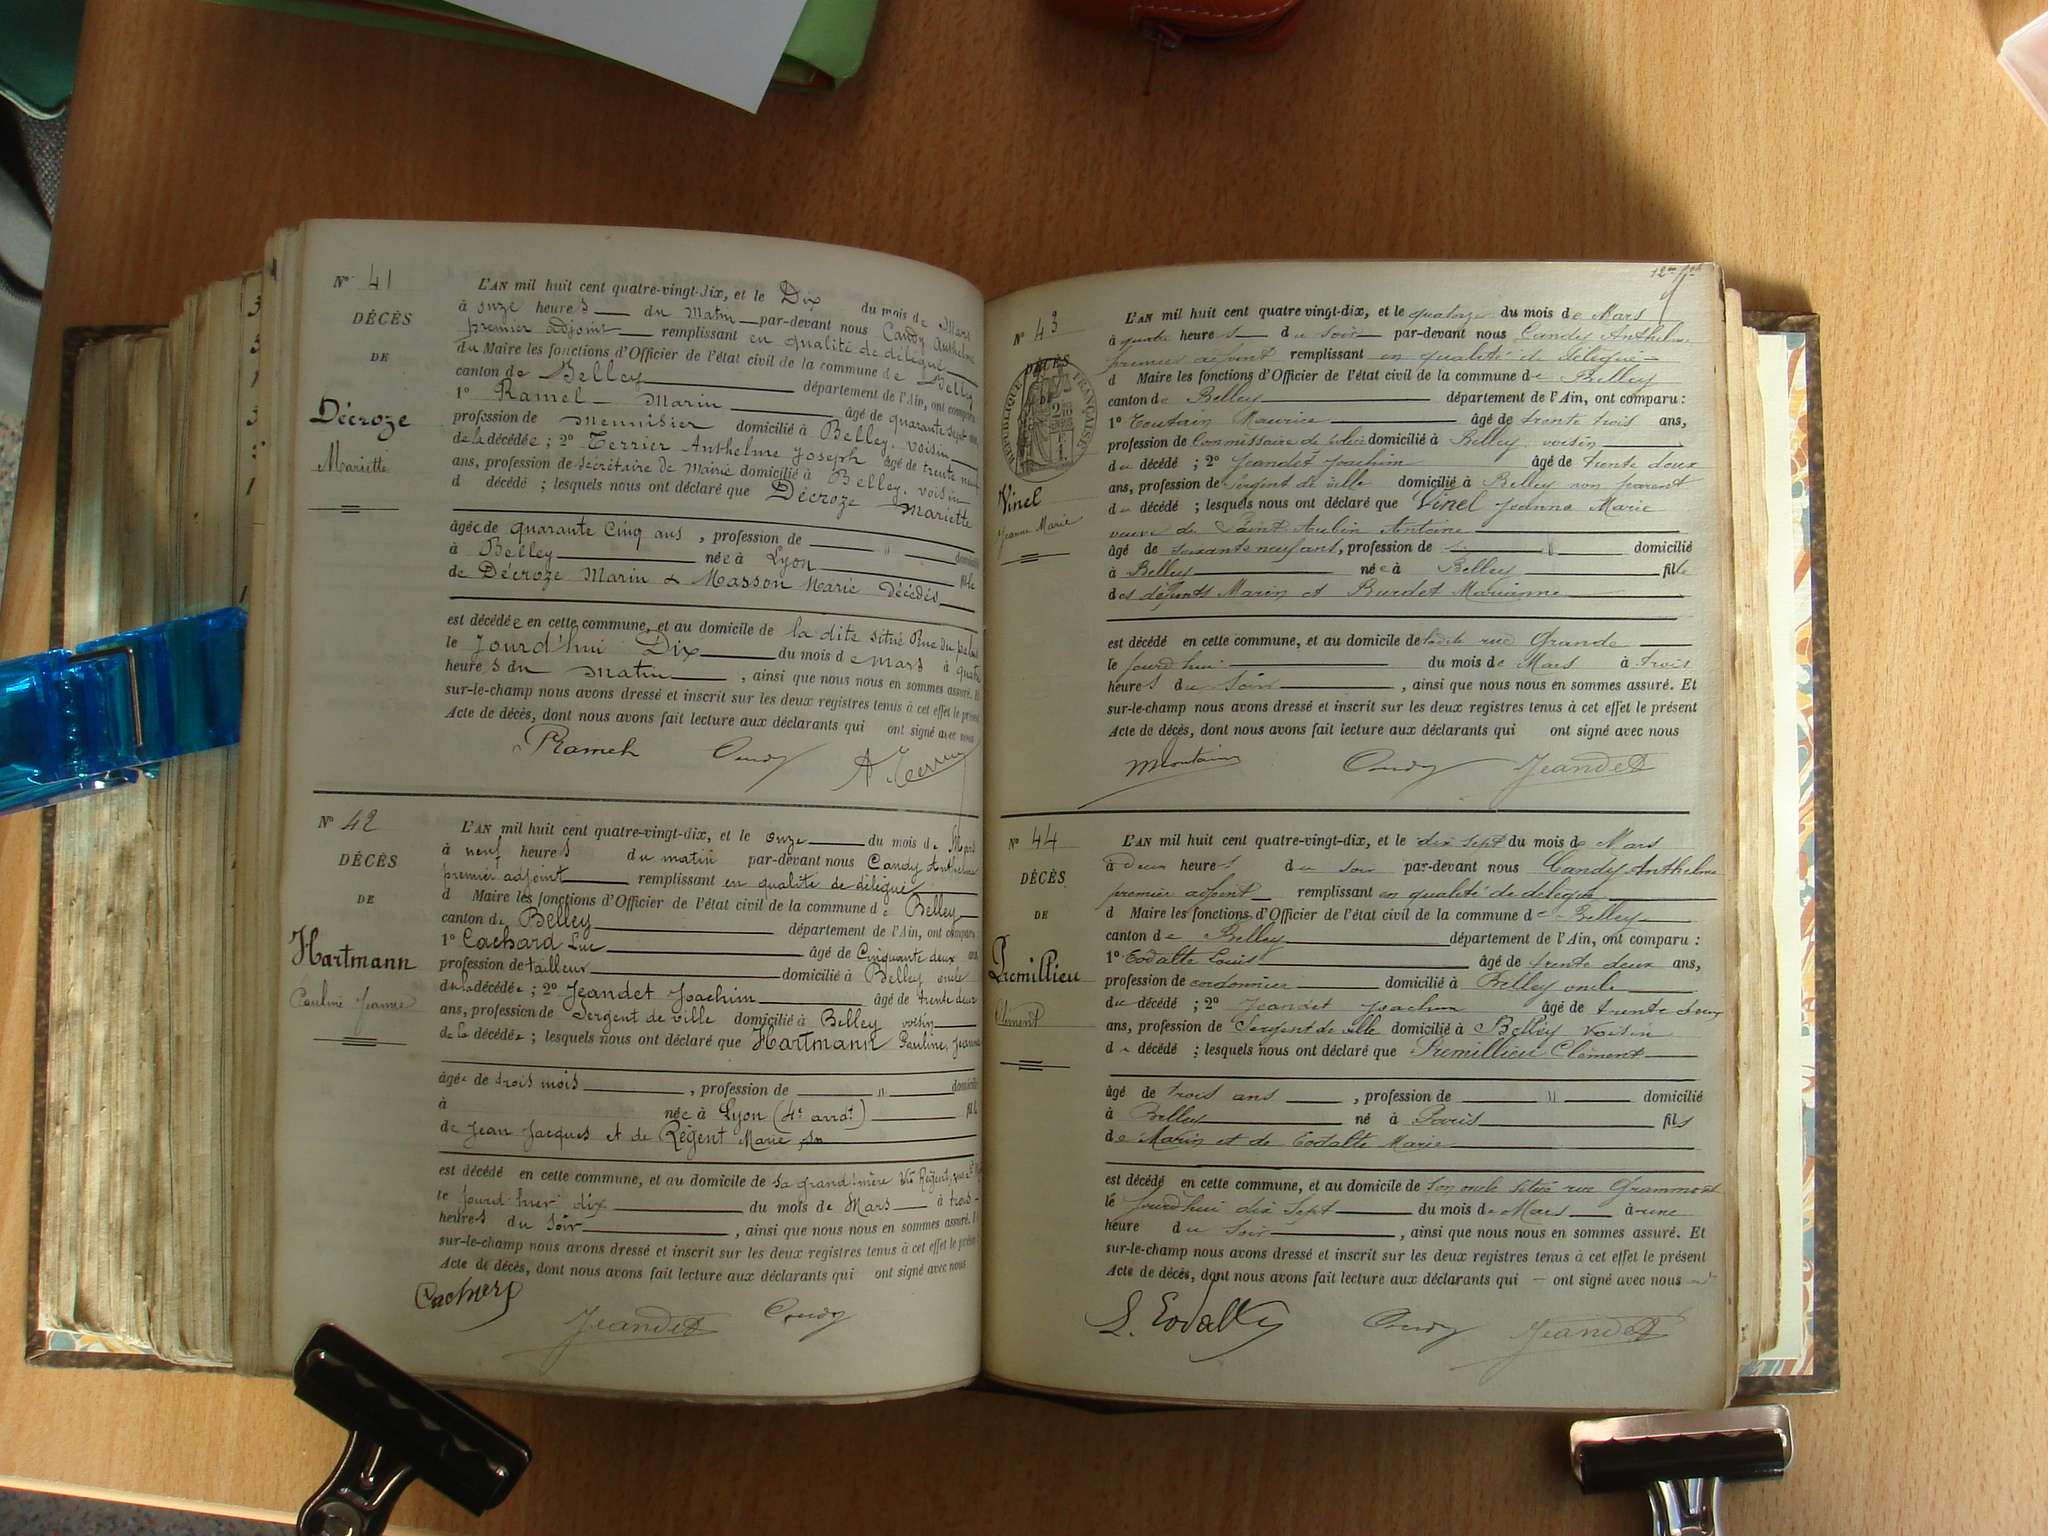 Nº 41
DÉCÈS
DE
Décroze
Mariette
L'AN mil huit cent quatre-vingt-dix, et le Dix du mois de Mars
à onze heures du matin par-devant nous Candy Anthelme
premier adjoint remplissant en qualité de délégué
du Maire les fonctions d'Officier de l'état civil de la commune de Belley
canton de Belley département de l'Ain, ont comparu
1º Ramel Marin âgé de quarante sept ans
profession de menuisier domicilié à Belley, voisin
de la décédée ; 2º Terrier Anthelme Joseph âgé de trente neuf
ans, profession de secrétaire de Mairie domicilié à Belley, voisin
d décédé ; lesquels nous ont déclaré que Décroze Mariette
âgée de quarante cinq ans , profession de " domicilié
à Belley née à Lyon fille
de Décroze Marin & Masson Marie Décédés
est décédée en cette commune, et au domicile de la dite situé Rue du
le Jourd'hui Dix du mois de mars à quatre
heures du matin , ainsi que nous nous en sommes assuré. Et
sur-le-champ nous avons dressé et inscrit sur les deux registres tenus à cet effet le présent
Acte de décès, dont nous avons fait lecture aux déclarants qui ont signé avec nous
Ramel Candy A Terrier
Nº 42
DÉCÈS
DE
Hartmann
Pauline Jeanne
L'AN mil huit cent quatre-vingt-dix, et le onze du mois de Mars
à neuf heures du matin par-devant nous Candy Anthelme
premier adjoint remplissant en qualité de délégué
d Maire les fonctions d'Officier de l'état civil de la commune de Belley
canton de Belley département de l'Ain, ont comparu
1º Cachard Luc âgé de Cinquante deux ans
profession de tailleur domicilié à Belley oncle
de la décédée ; 2º Jeandet Joachim âgé de trente deux
ans, profession de Sergent de ville domicilié à Belley voisin
de la décédée ; lesquels nous ont déclaré que Hartmann Pauline, Jeanne
âgée de trois mois , profession de " domicilié
à née à Lyon (4e arrdt) fille
de Jean Jacques et de Régent Marie
est décédé en cette commune, et au domicile de sa grand'mère Vve Régent, rue
le jourd'hier dix du mois de Mars à trois
heures du soir , ainsi que nous nous en sommes assuré. Et
sur-le-champ nous avons dressé et inscrit sur les deux registres tenus à cet effet le présent
Acte de décès, dont nous avons fait lecture aux déclarants qui ont signé avec nous
Jeandet Candy
Nº 43
DÉCÈS
RÉPUBLIQUE FRANÇAISE
Vinel
Jeanne Marie
L'AN mil huit cent quatre vingt-dix, et le quatorze du mois de Mars
à quatre heures du soir par-devant nous Candy Anthelme
premier adjoint remplissant en qualité de délégué
d Maire les fonctions d'Officier de l'état civil de la commune de Belley
canton de Belley département de l'Ain, ont comparu :
1º Toutain Maurice âgé de trente trois ans,
profession de Commissaire de police domicilié à Belley, voisin
du décédé ; 2º Jeandet Joachim âgé de trente deux
ans, profession de Sergent de ville domicilié à Belley non parent
du décédé ; lesquels nous ont déclaré que Vinel Jeanne Marie
veuve de Saint Aubin Antoine
âgé de soixante neuf ans, profession de domicilié
à Belley née à Belley fille
des défunts Marin et Burdet Marianne
est décédé en cette commune, et au domicile de la dite rue Grande
le jourd'hui du mois de Mars à trois
heures du soir , ainsi que nous nous en sommes assuré. Et
sur-le-champ nous avons dressé et inscrit sur les deux registres tenus à cet effet le présent
Acte de décès, dont nous avons fait lecture aux déclarants qui ont signé avec nous
Candy Jeandet
Nº 44
DÉCÈS
DE
Premillieu
Clément
L'AN mil huit cent quatre-vingt-dix, et le dix sept du mois de Mars
à deux heures du soir par-devant nous Candy Anthelme
premier adjoint remplissant en qualité de délégué
d Maire les fonctions d'Officier de l'état civil de la commune de Belley
canton de Belley département de l'Ain, ont comparu :
1º Eodalte Louis âgé de trente deux ans,
profession de cordonnier domicilié à Belley oncle
du décédé ; 2º Jeandet Joachim âgé de trente deux
ans, profession de Sergent de ville domicilié à Belley voisin
du décédé ; lesquels nous ont déclaré que Premillieu Clément
âgé de trois ans , profession de " domicilié
à Belley né à Paris fils
de Marin et de Eodalte Marie
est décédé en cette commune, et au domicile de son oncle situé rue Grammont
le jourd'hui dix sept du mois de Mars à une
heure du soir , ainsi que nous nous en sommes assuré. Et
sur-le-champ nous avons dressé et inscrit sur les deux registres tenus à cet effet le présent
Acte de décès, dont nous avons fait lecture aux déclarants qui ont signé avec nous
L. Eodalte Candy Jeandet